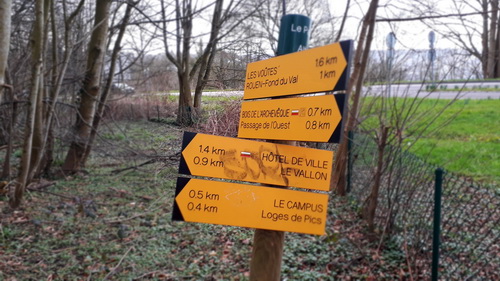 Le P
LES VOÛTES 1.6 km
ROUEN-Fond du Val 1 km
BOIS DE L'ARCHEVÊQUE 0.7 km
Passage de l'Ouest 0.8 km
1.4 km HÔTEL DE VILLE
0.9 km LE VALLON
0.5 km LE CAMPUS
0.4 km Loges de Pics